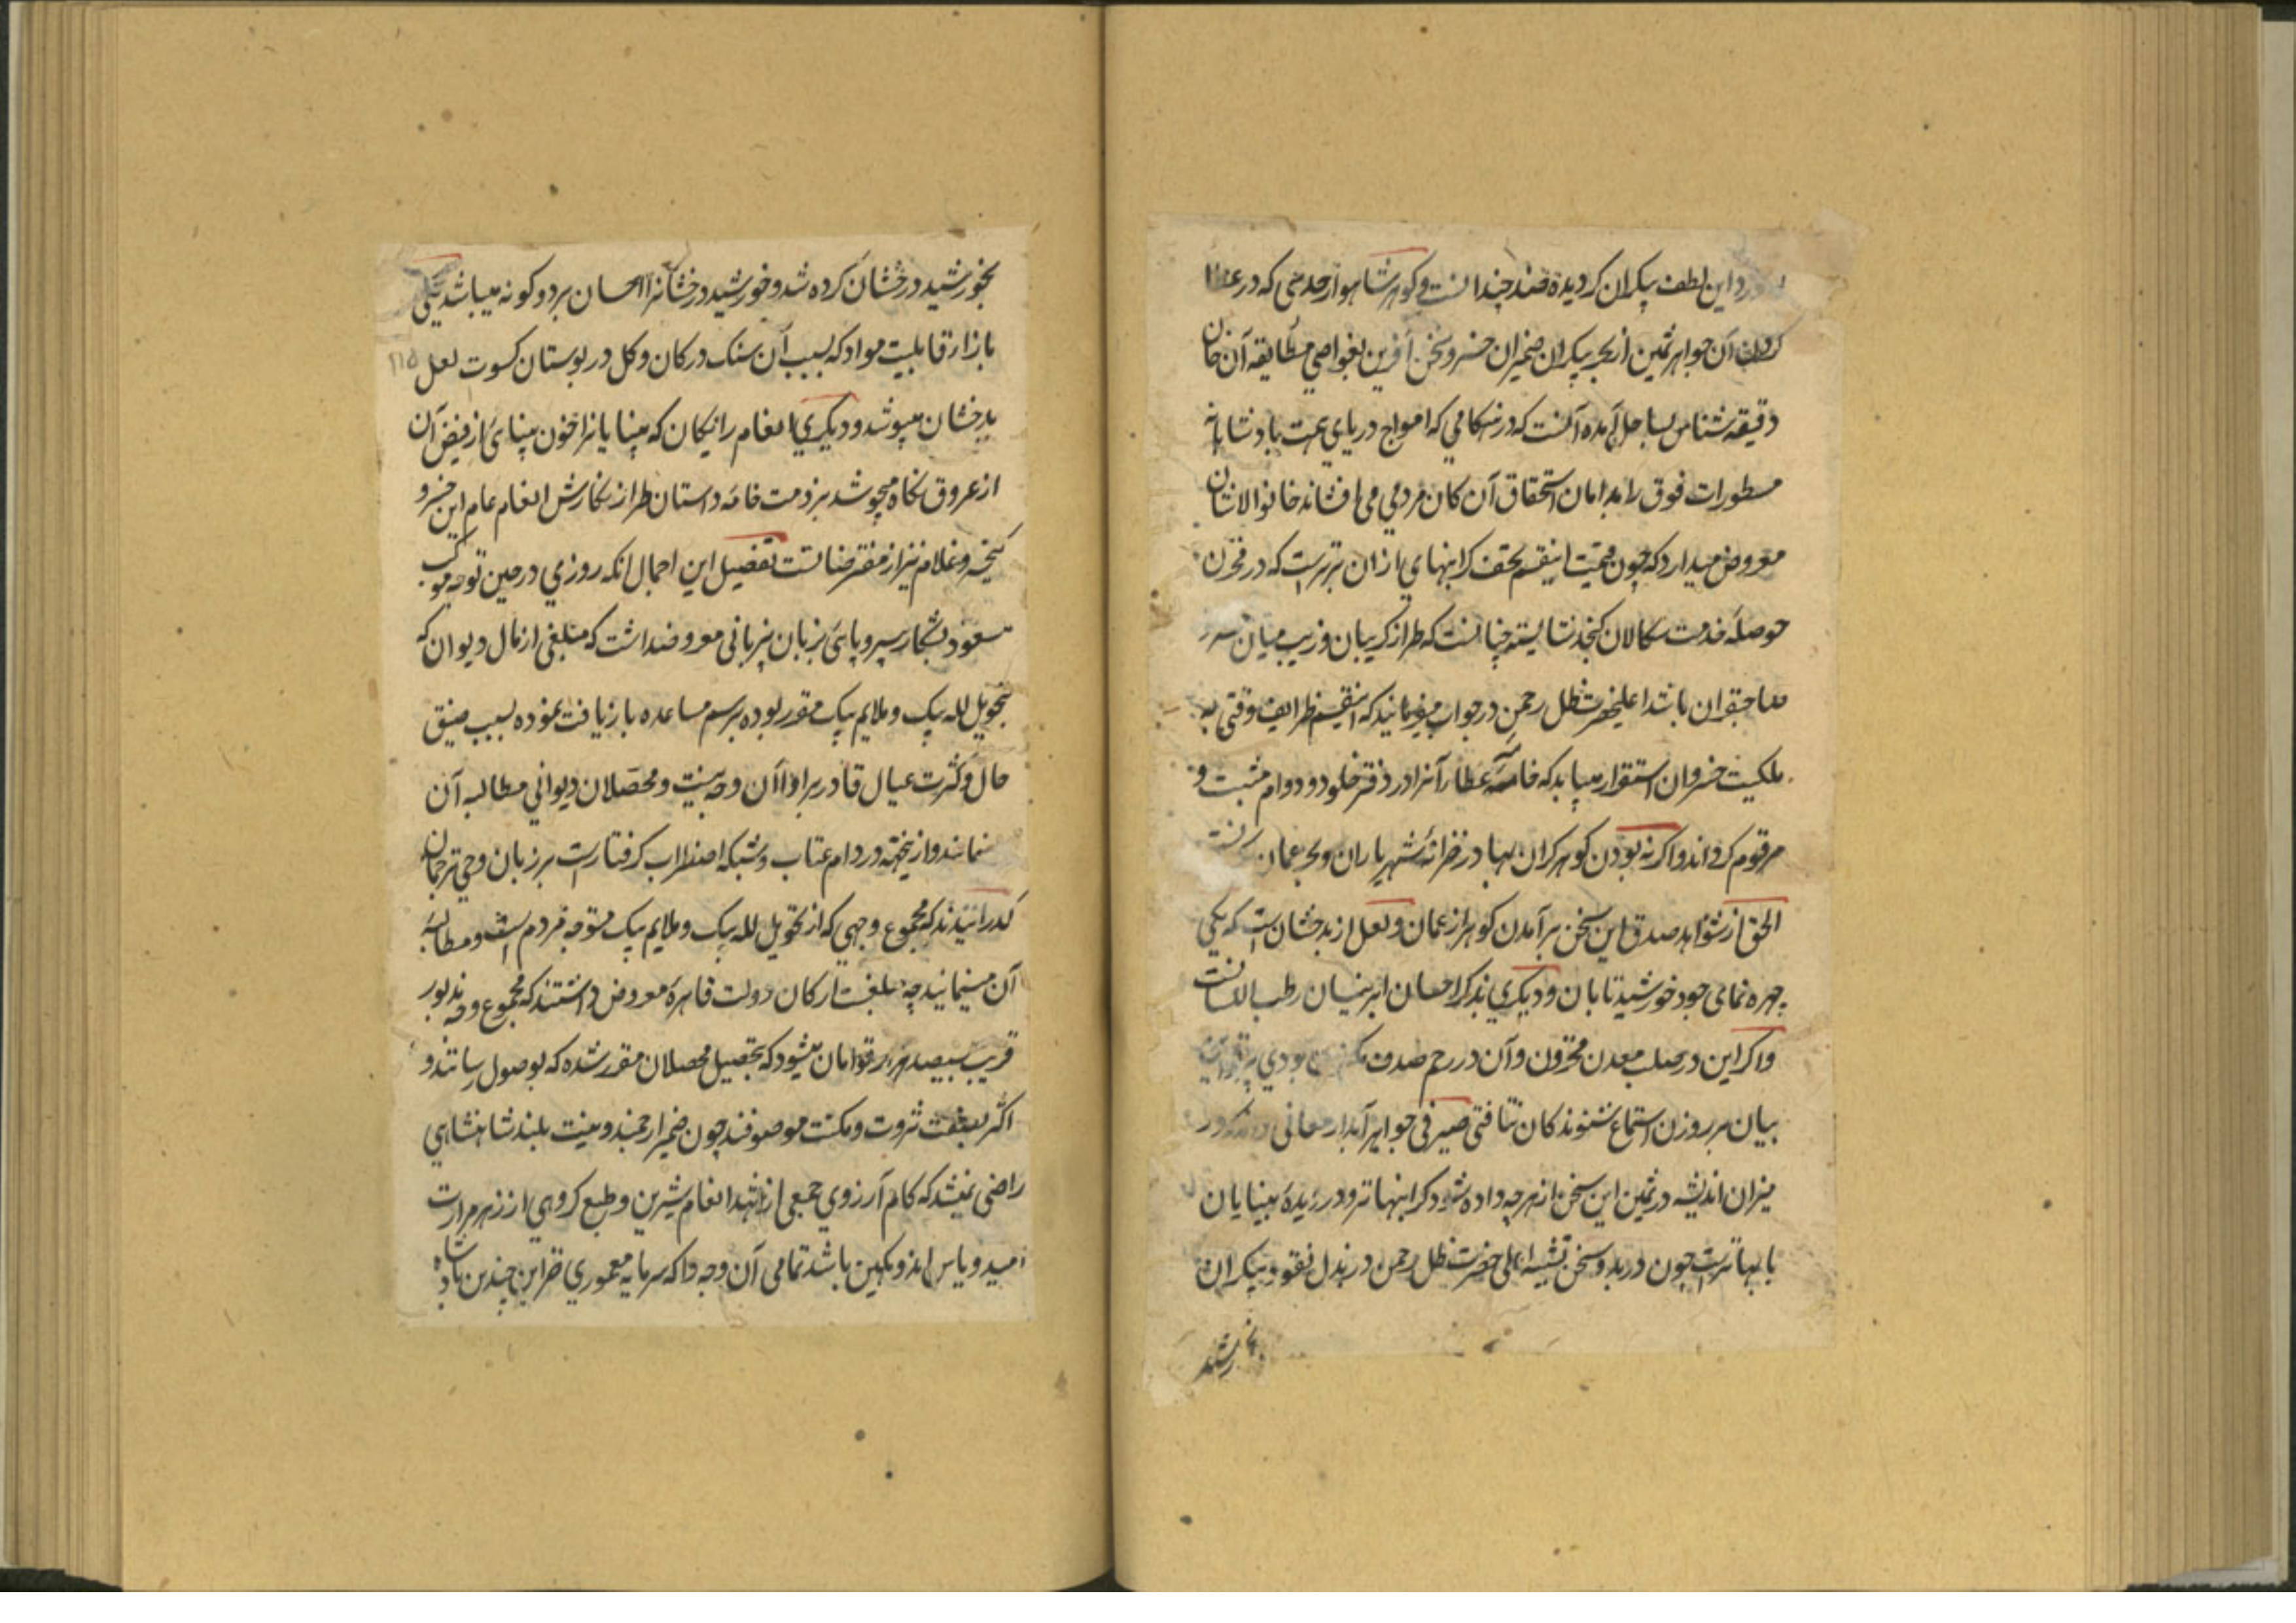 این لطف پیکران کردیده صد چندانست و کوهر شاهوار حدسی که در
آن جواهر ثمین از بحر بیکران ضمیران خسرو سخن آفرین بغواصی مطایقه آن خان
دقیقه شناس بساحل آمده آنست که در هنکامی که امواج دریای همت پادشاهانه
مسطورات فوق را بدامان استحقاق آن کان مردمی می افشاند خان والاشان
معروض میدارد که چون قیمت اینقسم تحف کرانبهای از ان برترست که در مخزن
حوصله خدمت سکالان کنجد شایسته چنانست که طراز کریبان و زیب میان
صاحبقران باشد اعلیحضرت ظل رحمن در جواب میفرمایند که اینقسم ظرایف وقتی به
ملکیت خسروان استقرار مییابد که خامه عطار آنرا در دفتر خلود و دوام مثبت و
مرقوم کرداند و اکر نه بودن کوهر کران بها در خزانه شهریاران و بحر عمان
الحق از شواهد صدق این سخن برآمدن کوهر از عمان و لعل از بدخشان است که یکی
چهره نمای جود خورشید تابان و دیکری بذکر احسان ابر نیسان رطب اللسانست
و اکر این در صلب معدن مخزون و آن در رحم صدف بودی
بیان بر روزن استماع شنوندکان نتافتی صیرفی جواهر آبدار معانی
میزان اندیشه در ثمین این سخن از هر چه داده شود کرانبهاتر و در دیده بینایان
بابهاترست چون در بدو سخن تشبیه اعلی حضرت ظل رحمن در بذل نقود بیکران
بخورشید
بخورشید درخشان کرده شد و خورشید درخشانرا احسان بر دو کونه میباشد یکی
بازار قابلیت مواد که بسبب آن سنک در کان و کل در بوستان کسوت لعل
بدخشان میپوشد و دیکری انعام رایکان که بینایانرا خون بینائی از فیض آن
از عروق نکاه میجوشد بر ذمت خامه داستان طراز نکارش انعام عام این خسرو
کیخسرو غلام نیز از مفترضاتست تفصیل این اجمال انکه روزی در حین توجه موکب
مسعود بشکار بی سروپائی بزبان بیزبانی معروضداشت که مبلغی از مال دیوان که
بتحویل لله بیک و ملایم بیک مقرر بوده برسم مساعده بازیافت نموده بسبب ضیق
حال و کثرت عیال قادر بر ادا آن وجه نیست و محصلان دیوانی مطالبه آن
مینمایند و از ینجهته در دام عتاب و شبکه اضطراب کرفتارست بر زبان وحی ترجمان
کذرانیدند که مجموع وجهی که از تحویل لله بیک و ملایم بیک متوجه مردم است و مطالبه
آن مینمایند چه مبلغست ارکان دولت قاهره معروض داشتند که مجموع وجه مذبور
قریب بسیصد هزار تومان میشود که بتحصیل محصلان مقرر شده که بوصول رسانند و
اکثر بصفت ثروت و مکنت موصوفند چون ضمیر ارجمند و نیت بلند شاهنشاهی
راضی نمیشد که کام آرزوی جمعی از شهد انعام شیرین و طبع کروهی از زهر مرارت
امید و یاس اندوهکین باشد تمامی آن وجه را که سرمایه معموری خزاین چندین پادشاه